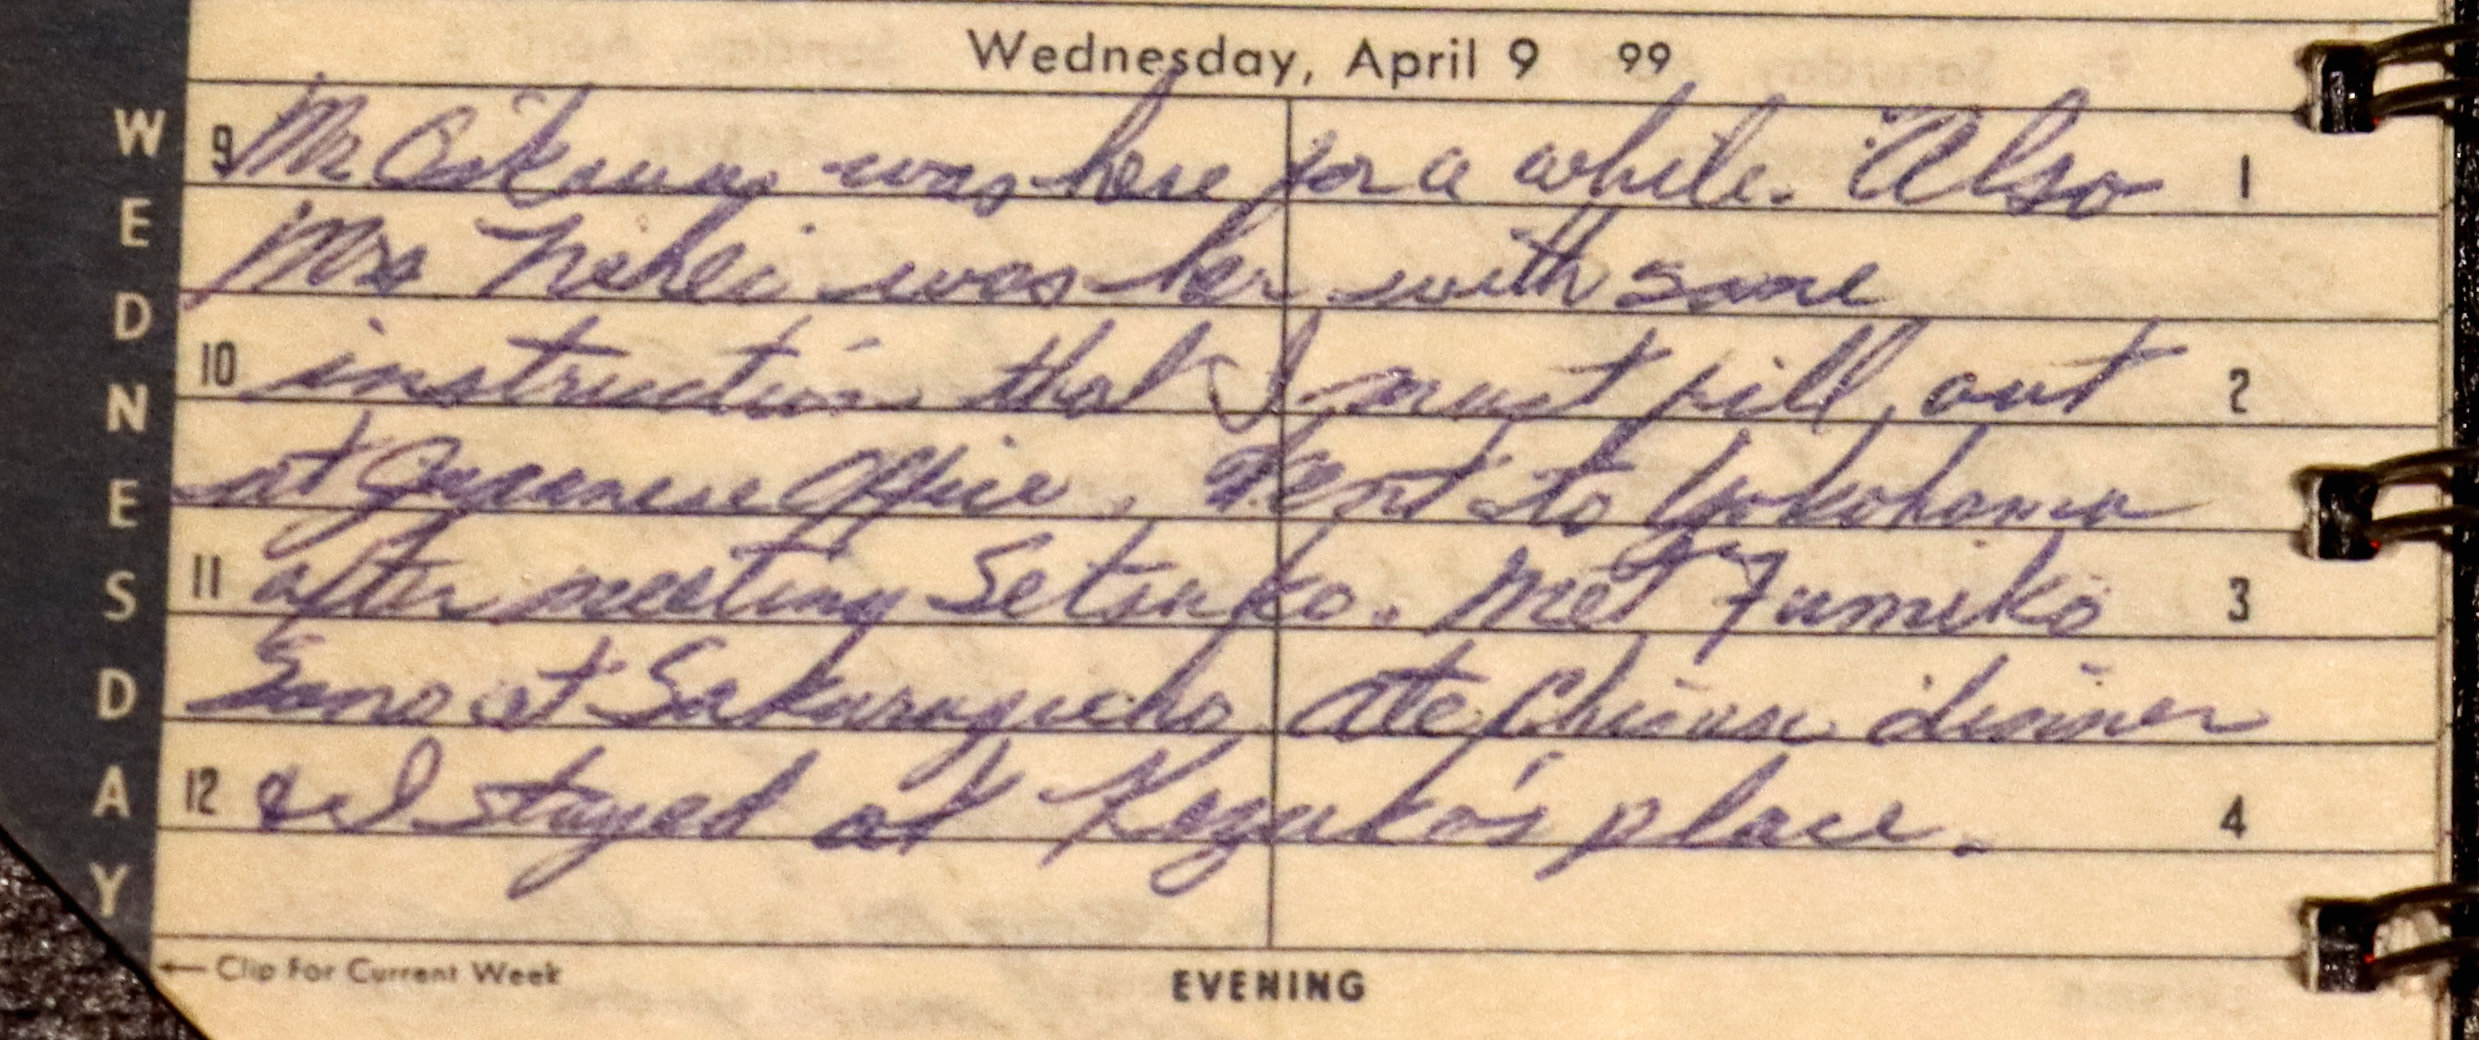 Wednesday, April 9 99
WEDNESDAY
9 Mr was here for a while. Also 1
Mrs was her with some
10 instruction that I must fill out 2
at Japanese Office. Went to Yokohama
11 after meeting Setsuko. Met Fumiko 3
Sano at Sakuragicho ate Chinese dinner
12 & I stayed at place. 4
←Clip For Current Week
EVENING